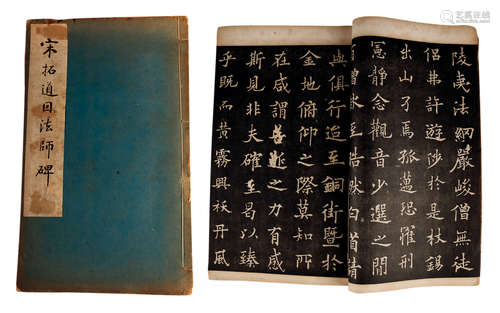 宋拓道因法師碑
陵夷法綱嚴峻僧無徒
侶弗許遊涉於是杖錫
出山孑焉孤邁恐罹刑
憲靜念觀音少選之間
有僧欻至皓然白首請
與俱行迨至銅街暨於
金地俯仰之際莫知所
在咸謂善逝之力有感
斯見非夫確至曷以臻
乎既而黃霧興祅丹風